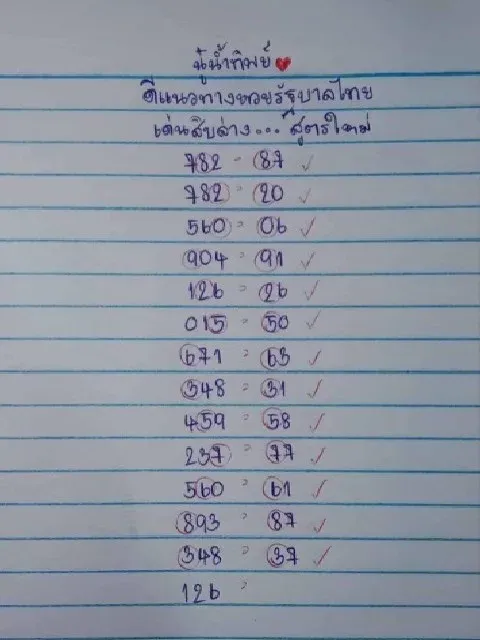 ปู่น้ำทิพย์
ดีแนวทางหวยรัฐบาลไทย
เด่นสิบล่าง... สูตรใหม่
782 - 87 ✓
782 = 20 ✓
560 = 06 ✓
904 = 91 ✓
126 = 26 ✓
015 = 50 ✓
671 = 63 ✓
348 = 31 ✓
459 = 58 ✓
237 = 77 ✓
560 = 61 ✓
893 = 87 ✓
348 = 37 ✓
126 =